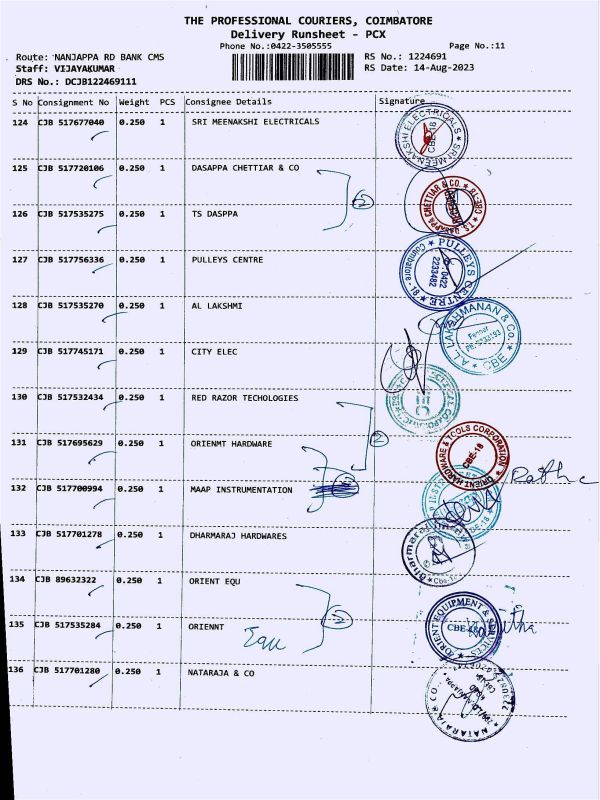 THE PROFESSIONAL COURIERS, COIMBATORE
Delivery Runsheet - PCX
Phone No.:0422-3505555
Page No.:11
Route: NANJAPPA RD BANK CMS
RS No.: 1224691
Staff: VIJAYAKUMAR
RS Date: 14-Aug-2023
DRS No.: DCJB122469111
S No Consignment No Weight PCS Consignee Details Signature
124 CJB 517677040 0.250 1 SRI MEENAKSHI ELECTRICALS
SRI MEENAKSHI ELECTRICALS CBE-18
125 CJB 517720106 0.250 1 DASAPPA CHETTIAR & CO
DASAPPA CHETTIAR & CO. CBE-18
126 CJB 517535275 0.250 1 TS DASPPA
2
127 CJB 517756336 0.250 1 PULLEYS CENTRE
PULLEYS CENTRE Coimbatore - 18 0422 2233482
128 CJB 517535270 0.250 1 AL LAKSHMI
& Co. CBE
129 CJB 517745171 0.250 1 CITY ELEC
130 CJB 517532434 0.250 1 RED RAZOR TECHOLOGIES
131 CJB 517695629 0.250 1 ORIENMT HARDWARE
2
ORIENT HARDWARE & TOOLS CORPORATION CBE-18
132 CJB 517700994 0.250 1 MAAP INSTRUMENTATION
133 CJB 517701278 0.250 1 DHARMARAJ HARDWARES
Dharmaraj
134 CJB 89632322 0.250 1 ORIENT EQU
135 CJB 517535284 0.250 1 ORIENNT
2
ORIENT EQUIPMENT & SERVICES CBE
136 CJB 517701280 0.250 1 NATARAJA & CO
NATARAJA & CO.